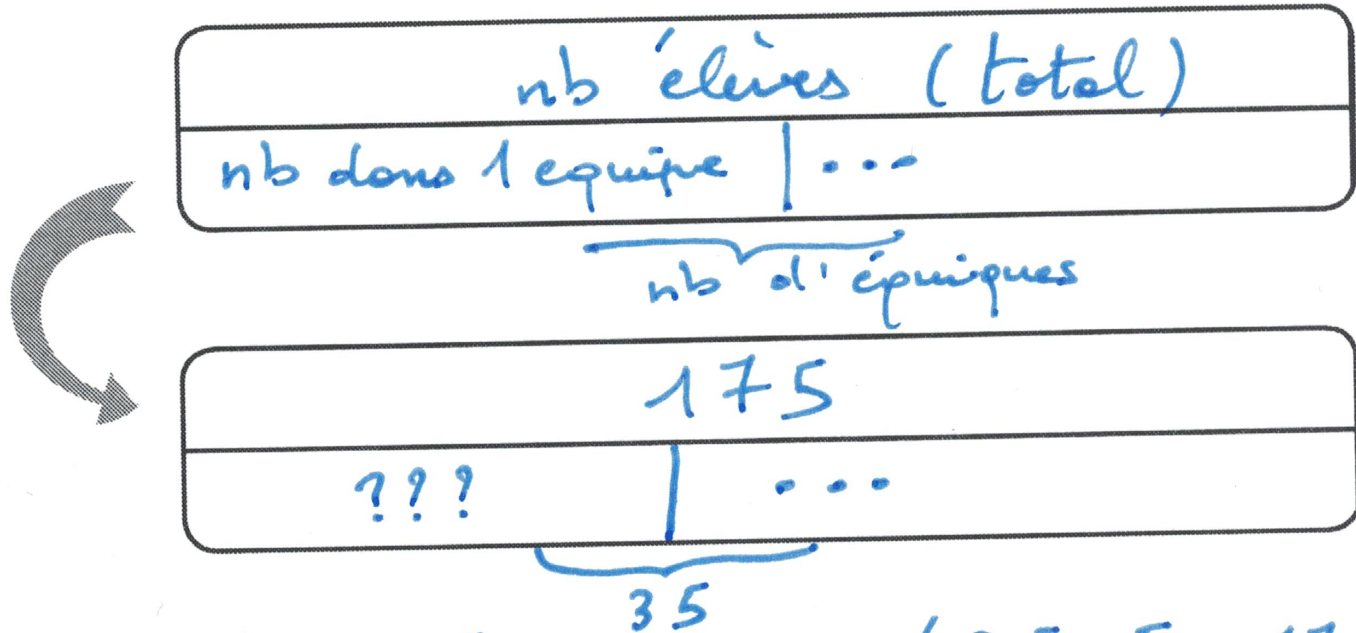 nb élèves (total)
nb dans 1 equipe | ...
nb d'équiques
175
??? | ...
35